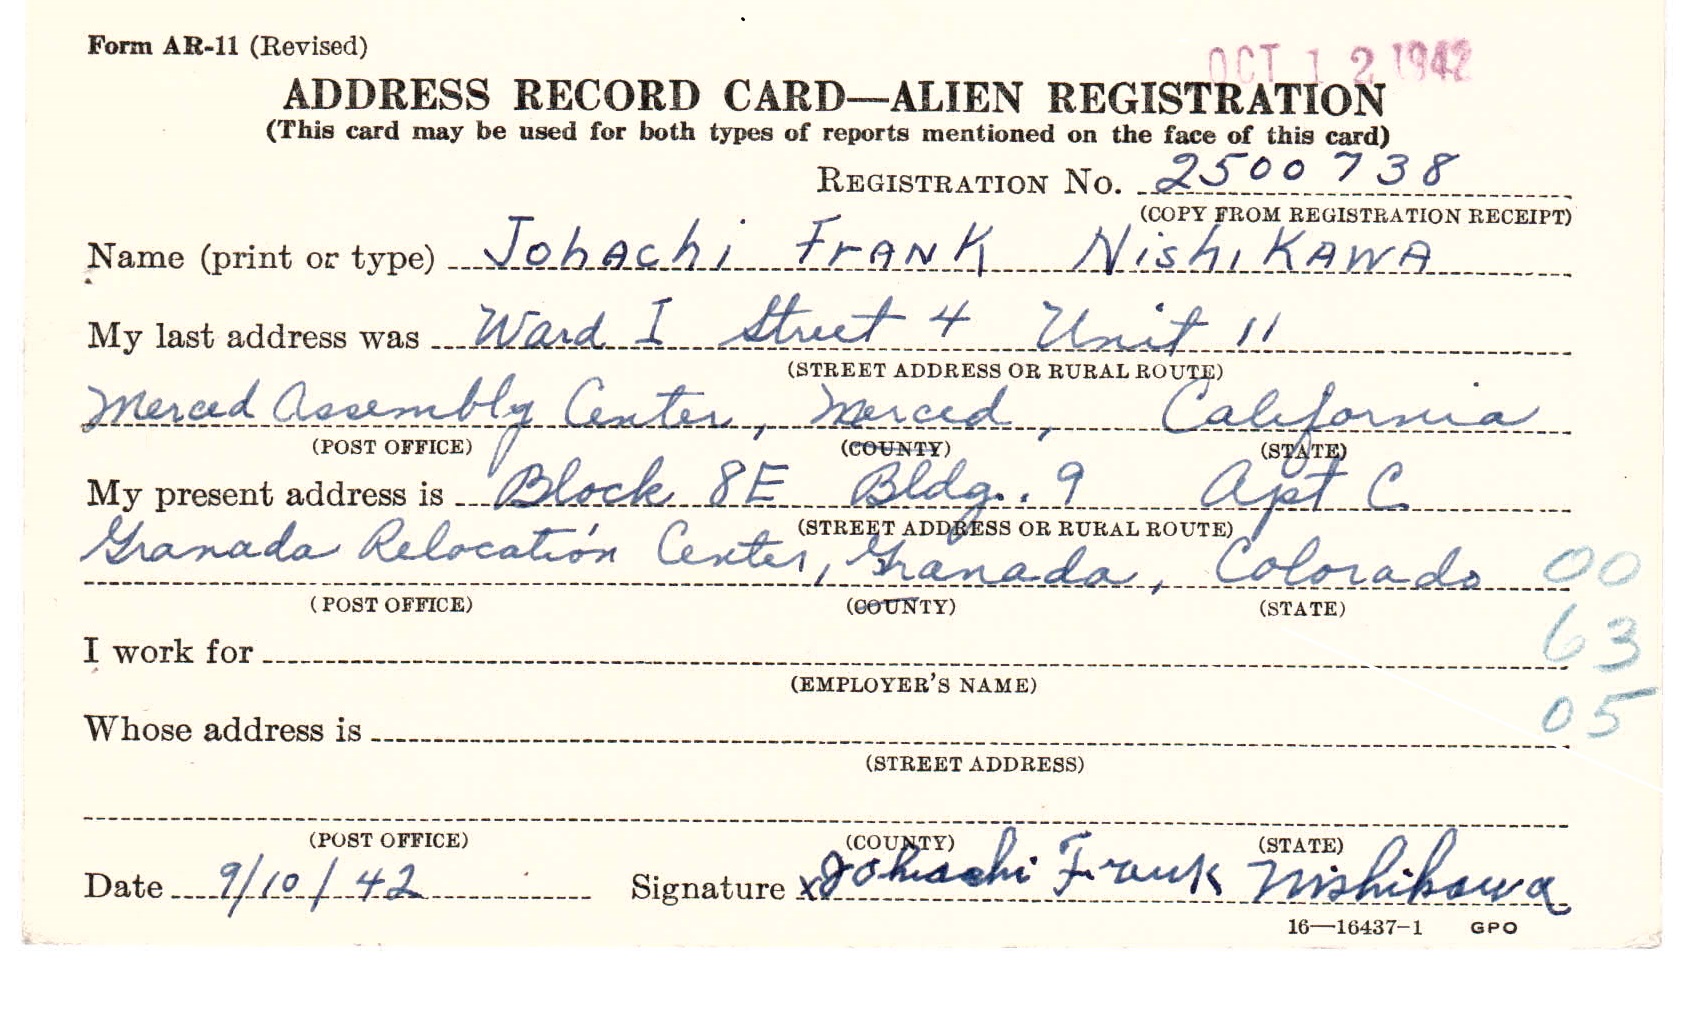 Form AR-11 (Revised)
OCT 12 1942
ADDRESS RECORD CARD—ALIEN REGISTRATION
(This card may be used for both types of reports mentioned on the face of this card)
REGISTRATION No. 2500738
(COPY FROM REGISTRATION RECEIPT)
Name (print or type) Johachi Frank Nishikawa
My last address was Ward I Street 4 Unit 11
(STREET ADDRESS OR RURAL ROUTE)
Merced Assembly Center, Merced, California
(POST OFFICE) (COUNTY) (STATE)
My present address is Block 8E Bldg. 9 Apt C
(STREET ADDRESS OR RURAL ROUTE)
Granada Relocation Center, Granada, Colorado 00
(POST OFFICE) (COUNTY) (STATE)
I work for 63
(EMPLOYER'S NAME)
Whose address is 05
(STREET ADDRESS)
(POST OFFICE) (COUNTY) (STATE)
Date 9/10/42 Signature x Johachi Frank Nishikawa
16—16437-1 GPO